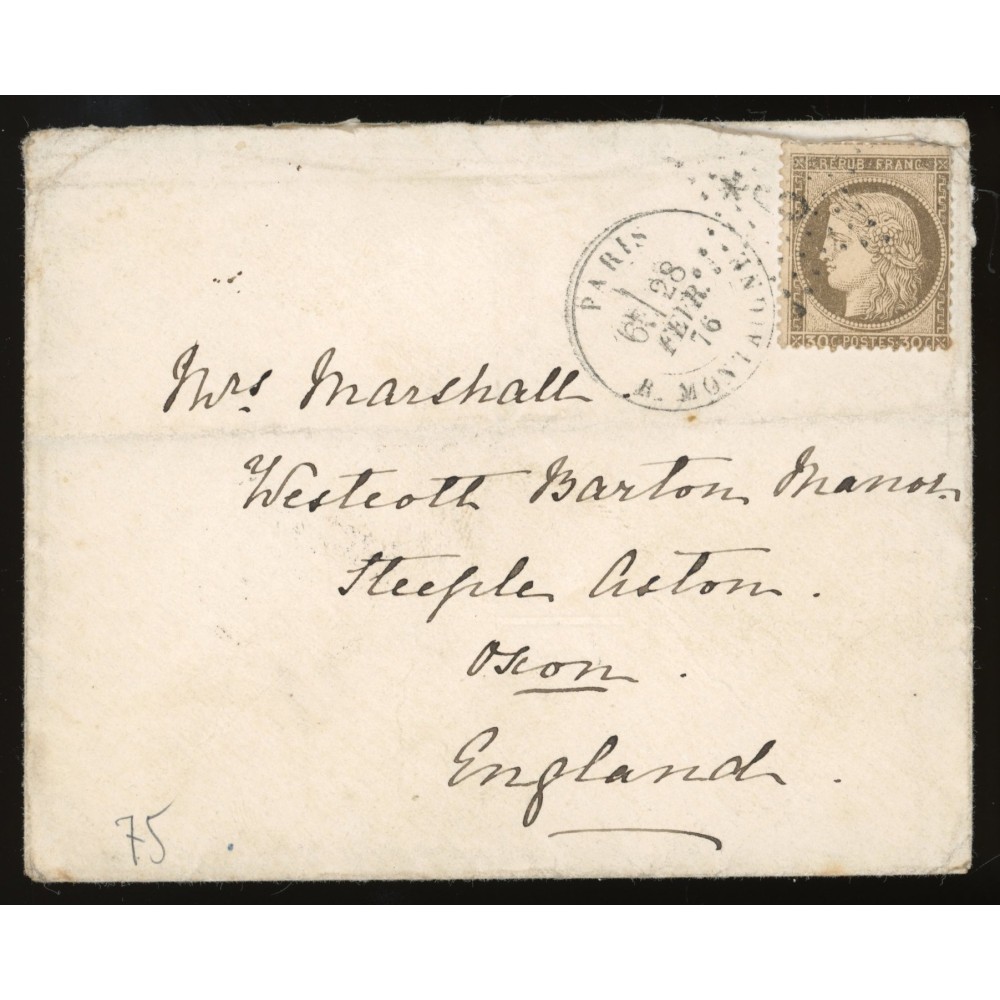 RÉPUB·FRANC
30C·POSTES·30C
PARIS
6E
28
FEVR.
76
R. MONTAIGNE
Mrs. Marshall.
Westcott Barton Manor
Steeple Aston.
Oxon.
England.
75